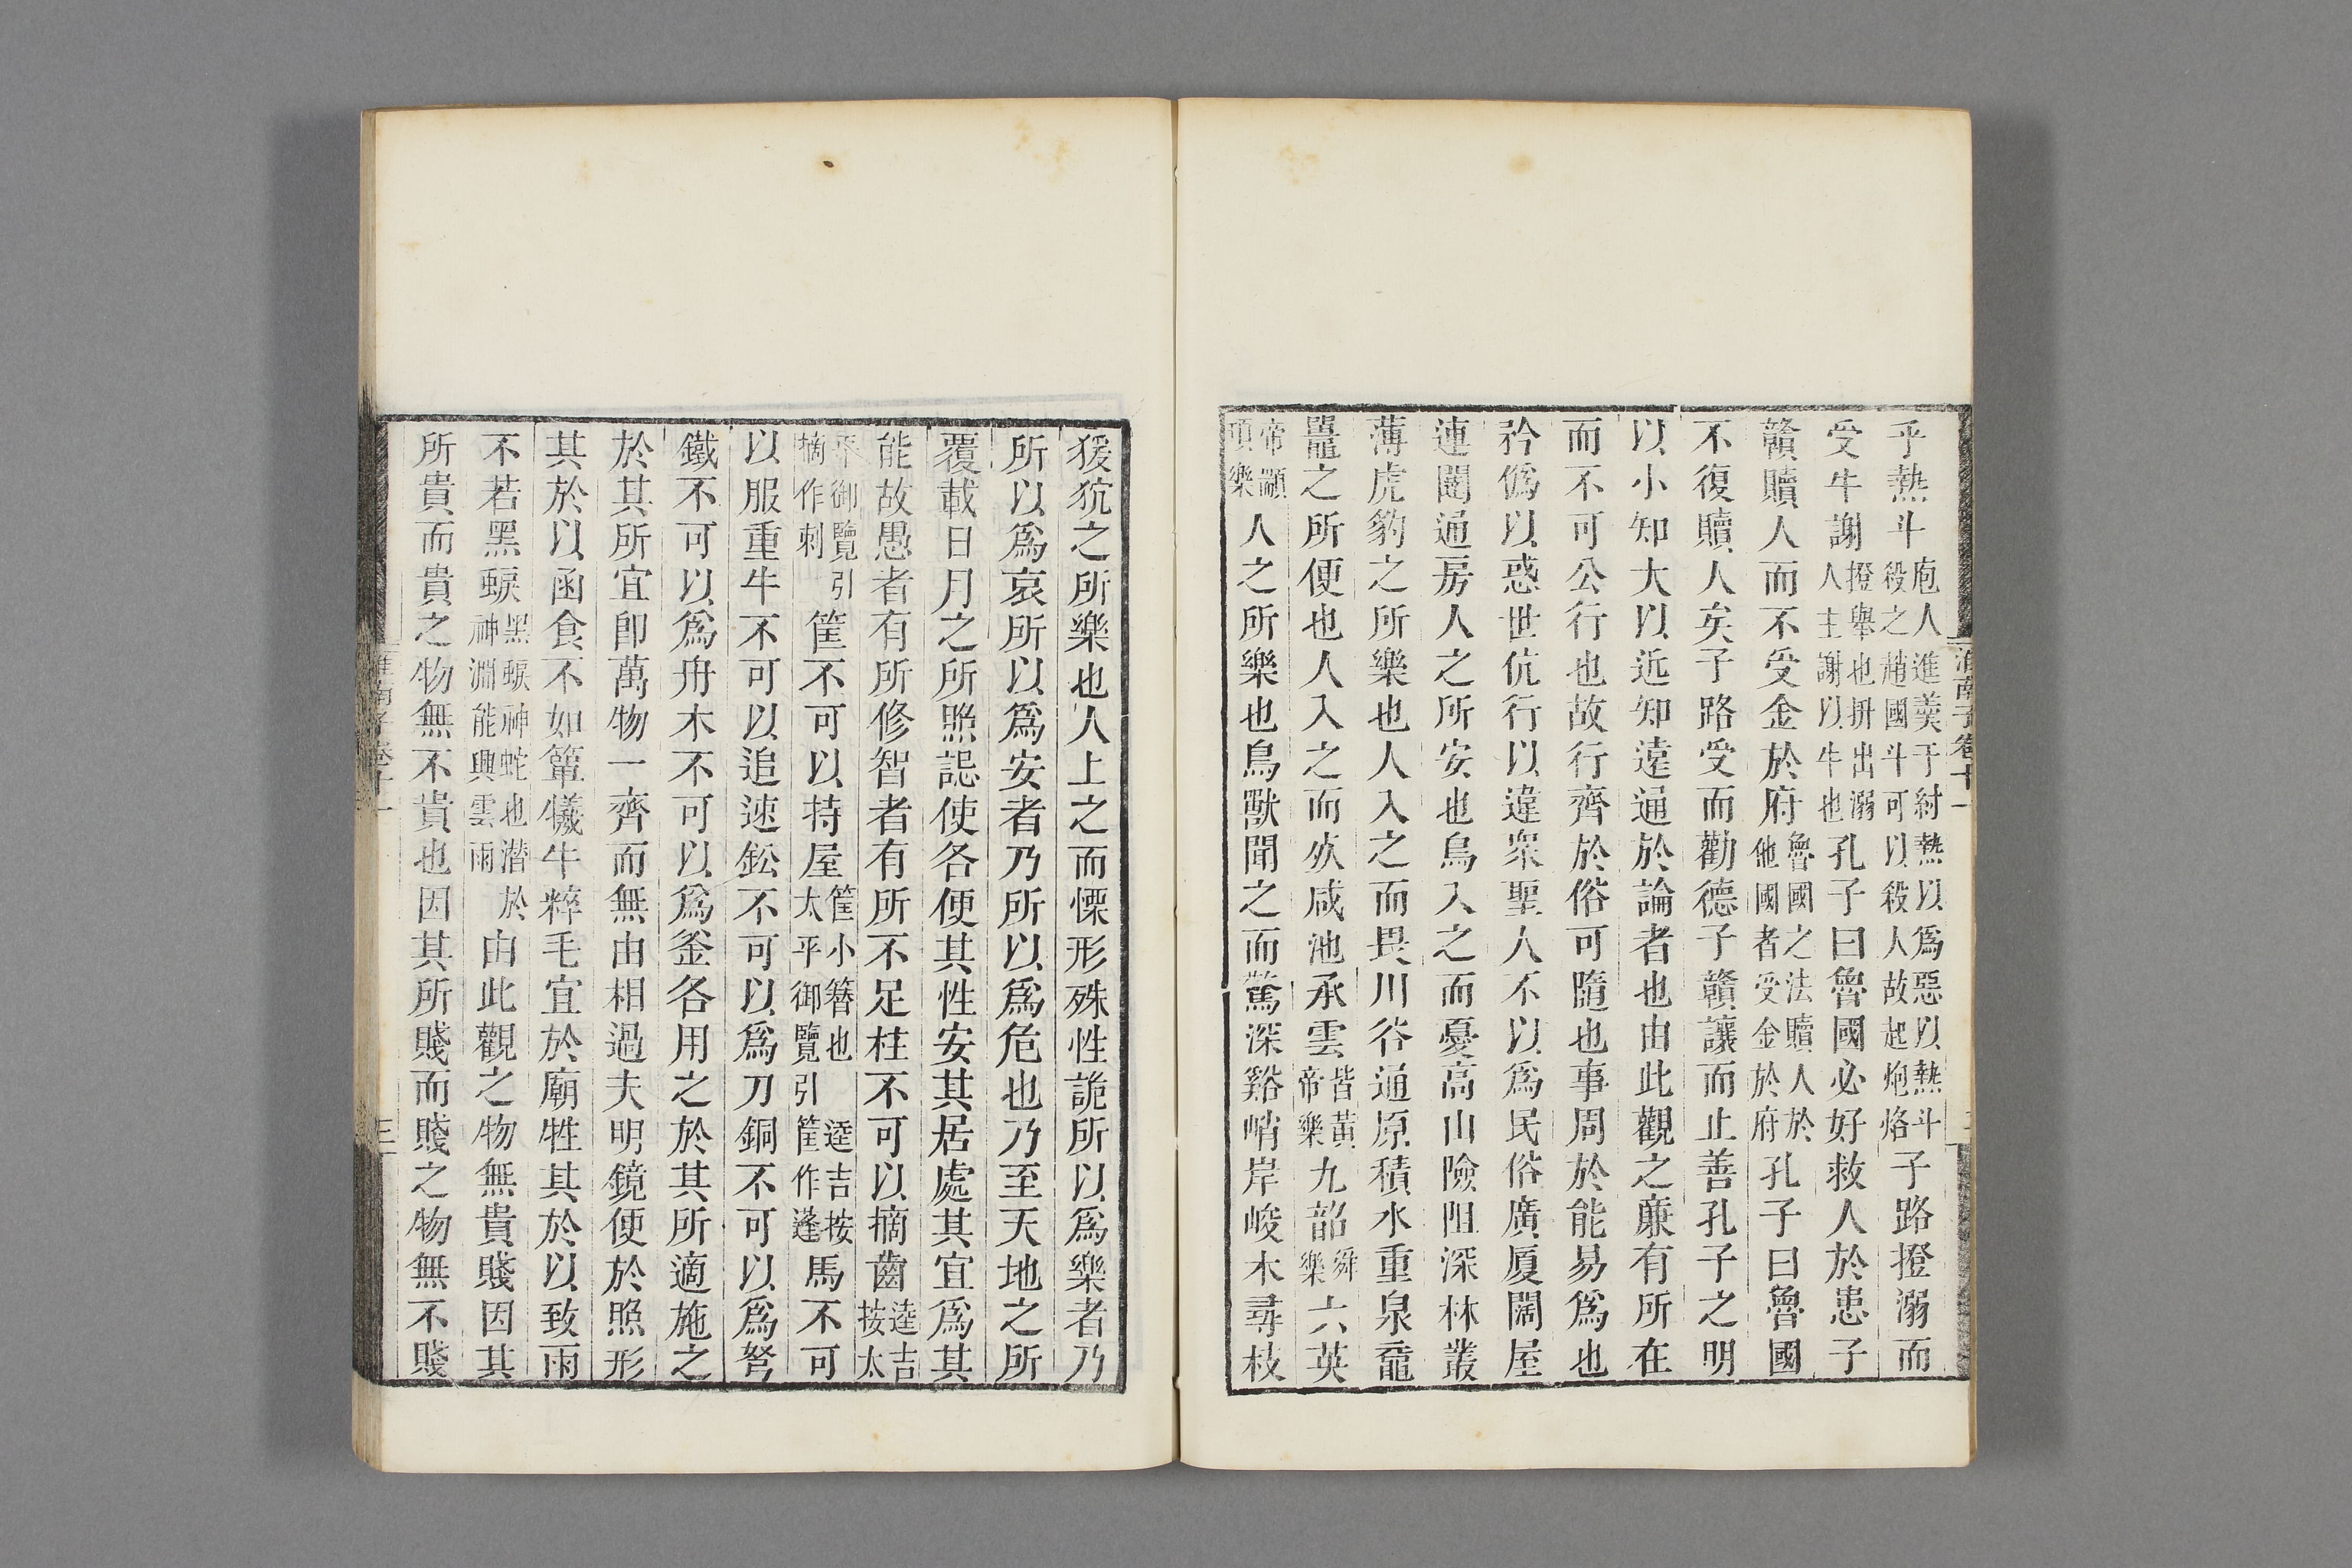 乎熱斗庖人進羹于紂熱以爲惡以熱斗殺之趙國斗可以殺人故起炮烙子路撜溺而
受牛謝撜舉也抍出溺人主謝以牛也孔子曰魯國必好救人於患子
贛贖人而不受金於府魯國之法贖人於他國者受金於府孔子曰魯國
不復贖人矣子路受而勸德子贛讓而止善孔子之明
以小知大以近知遠通於論者也由此觀之廉有所在
而不可公行也故行齊於俗可隨也事周於能易爲也
矜僞以惑世伉行以違衆聖人不以爲民俗廣厦闊屋
連闥通房人之所安也鳥入之而憂高山險阻深林叢
薄虎豹之所樂也人入之而畏川谷通原積水重泉黿
鼉之所便也人入之而死咸池承雲皆黃帝樂九韶舜樂六英
帝顓頊樂人之所樂也鳥獸聞之而驚深谿峭岸峻木尋枝
淮南子卷十一
猨狖之所樂也人上之而慄形殊性詭所以爲樂者乃
所以爲哀所以爲安者乃所以爲危也乃至天地之所
覆載日月之所照誋使各便其性安其居處其宜爲其
能故愚者有所修智者有所不足柱不可以摘齒逵吉按太
平御覽引摘作刺筐不可以持屋筐小簪也太平御覽引筐作蓬逵吉按馬不可
以服重牛不可以追速鈆不可以爲刀銅不可以爲弩
鐵不可以爲舟木不可以爲釜各用之於其所適施之
於其所宜卽萬物一齊而無由相過夫明鏡便於照形
其於以函食不如簞犧牛粹毛宜於廟牲其於以致雨
不若黑蜧黑蜧神蛇也潜於神淵能興雲雨由此觀之物無貴賤因其
所貴而貴之物無不貴也因其所賤而賤之物無不賤
淮南子卷十一
三